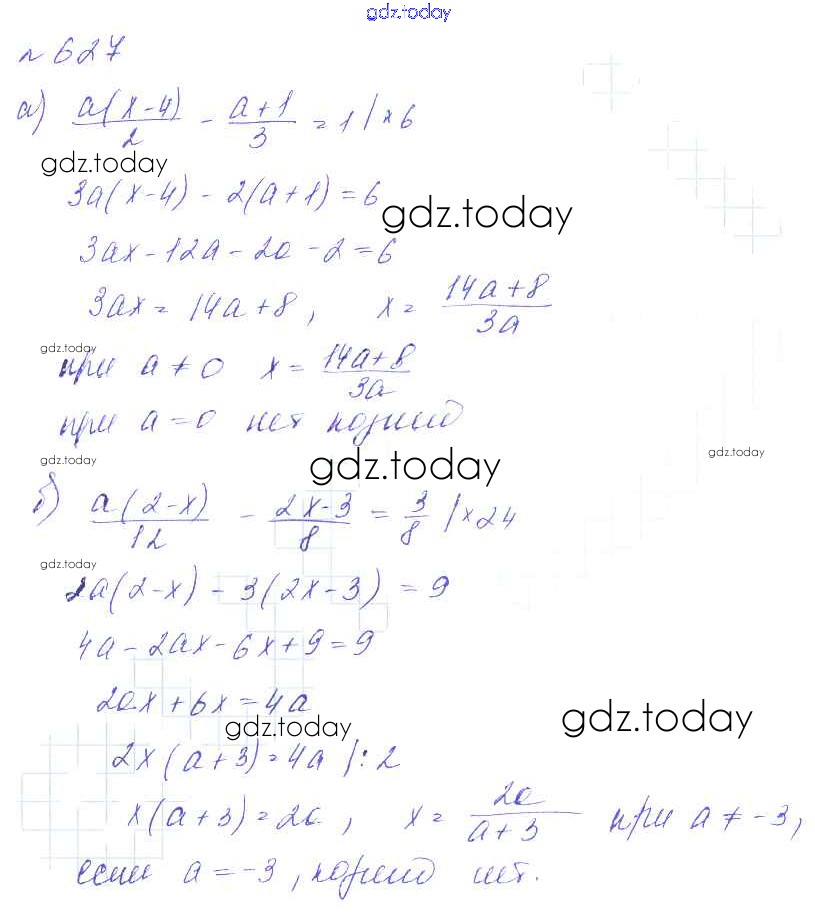 gdz.today
№ 627
а) a(x-4)/2 - (a+1)/3 = 1 | × 6
gdz.today
3a(x-4) - 2(a+1) = 6
gdz.today
3ax - 12a - 2a - 2 = 6
3ax = 14a + 8, x = (14a+8)/3a
gdz.today
при a ≠ 0 x = (14a+8)/3a
при a = 0 нет корней
gdz.today
gdz.today
gdz.today
б) a(2-x)/12 - (2x-3)/8 = 3/8 | × 24
gdz.today
2a(2-x) - 3(2x-3) = 9
4a - 2ax - 6x + 9 = 9
2ax + 6x = 4a
gdz.today
gdz.today
2x(a+3) = 4a | : 2
x(a+3) = 2a, x = 2a/(a+3) при a ≠ -3,
если a = -3, корней нет.